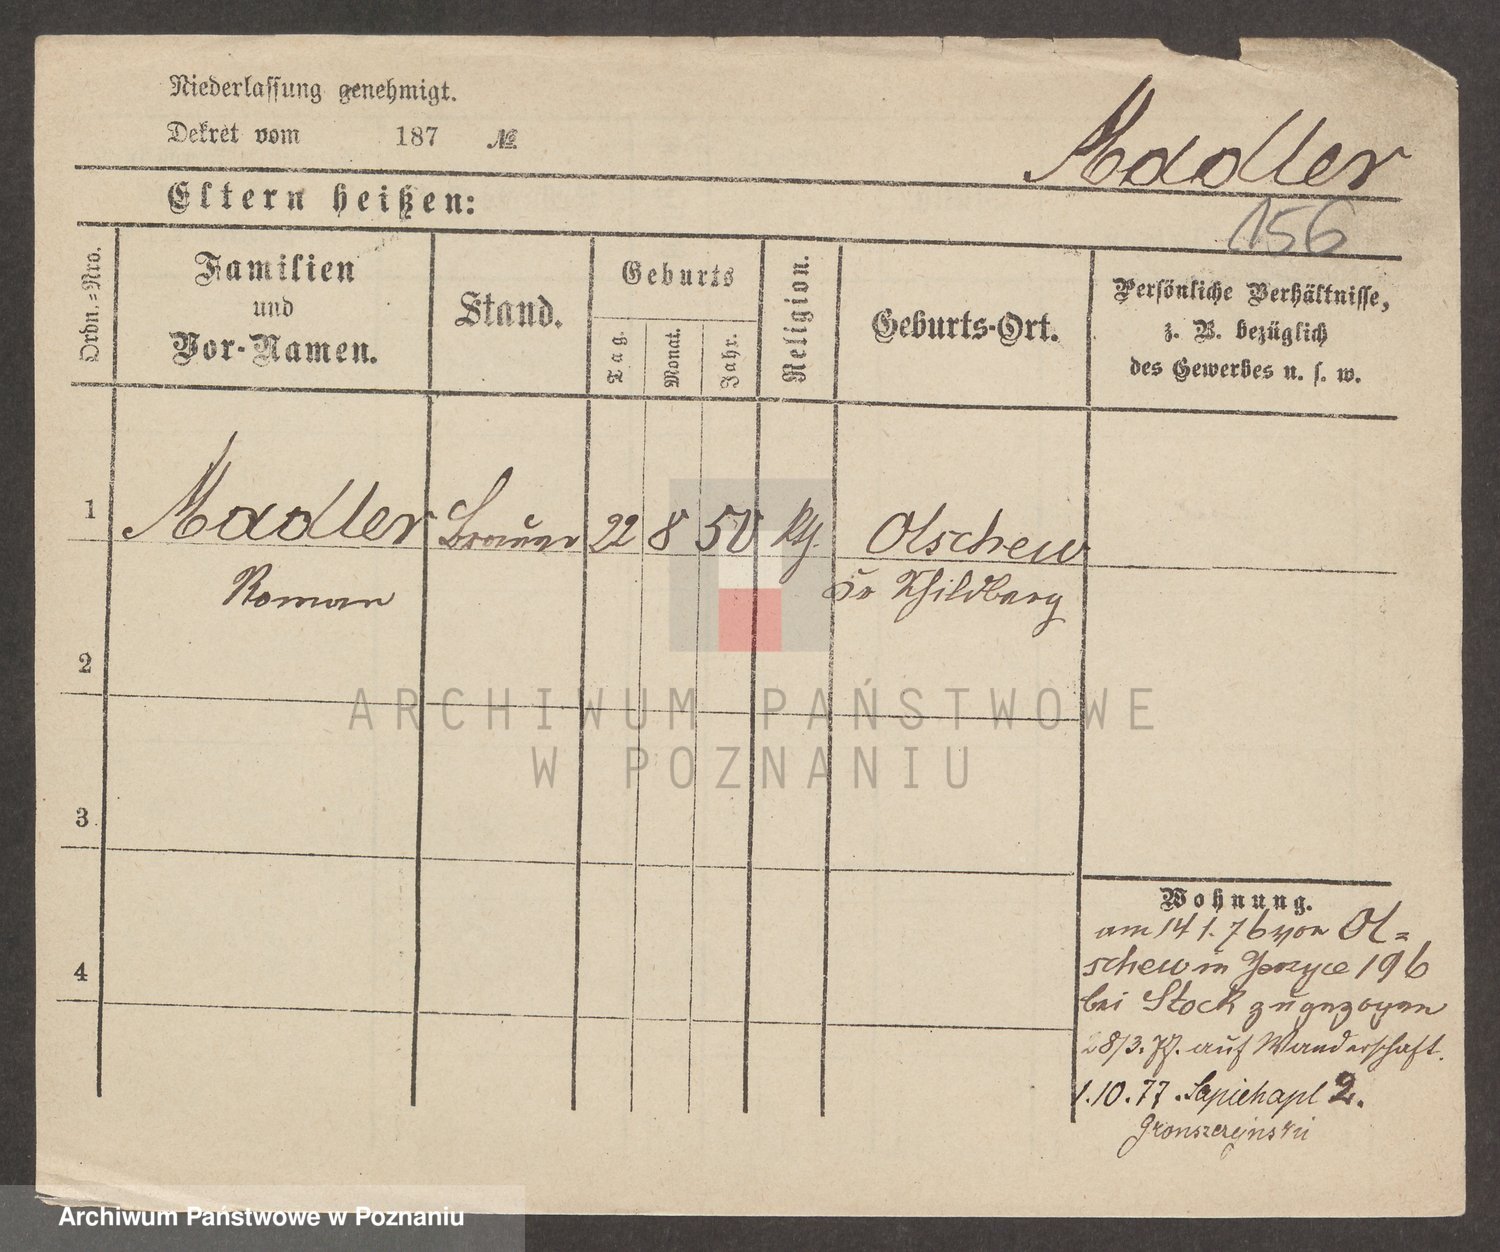 Niederlassung genehmigt.
Dekret vom 187 №
Madler
Eltern heißen:
156
Ordn.=Nro.
Familien
und
Vor-Namen.
Stand.
Geburts
Tag.
Monat.
Jahr.
Religion.
Geburts-Ort.
Persönliche Verhältnisse,
z. B. bezüglich
des Gewerbes u. s. w.
1
Madler Brauer 22 8 50 kth. Olschew
Roman
Kr Schildberg
2
3
4
Wohnung.
am 14 1. 76 von Ol=
schew in Jerzyce 196
bei Stock zugezogen
28/3. 77. auf Wanderschaft.
1.10.77. Sapiehapl 2.
ARCHIWUM PAŃSTWOWE
W POZNANIU
Archiwum Państwowe w Poznaniu